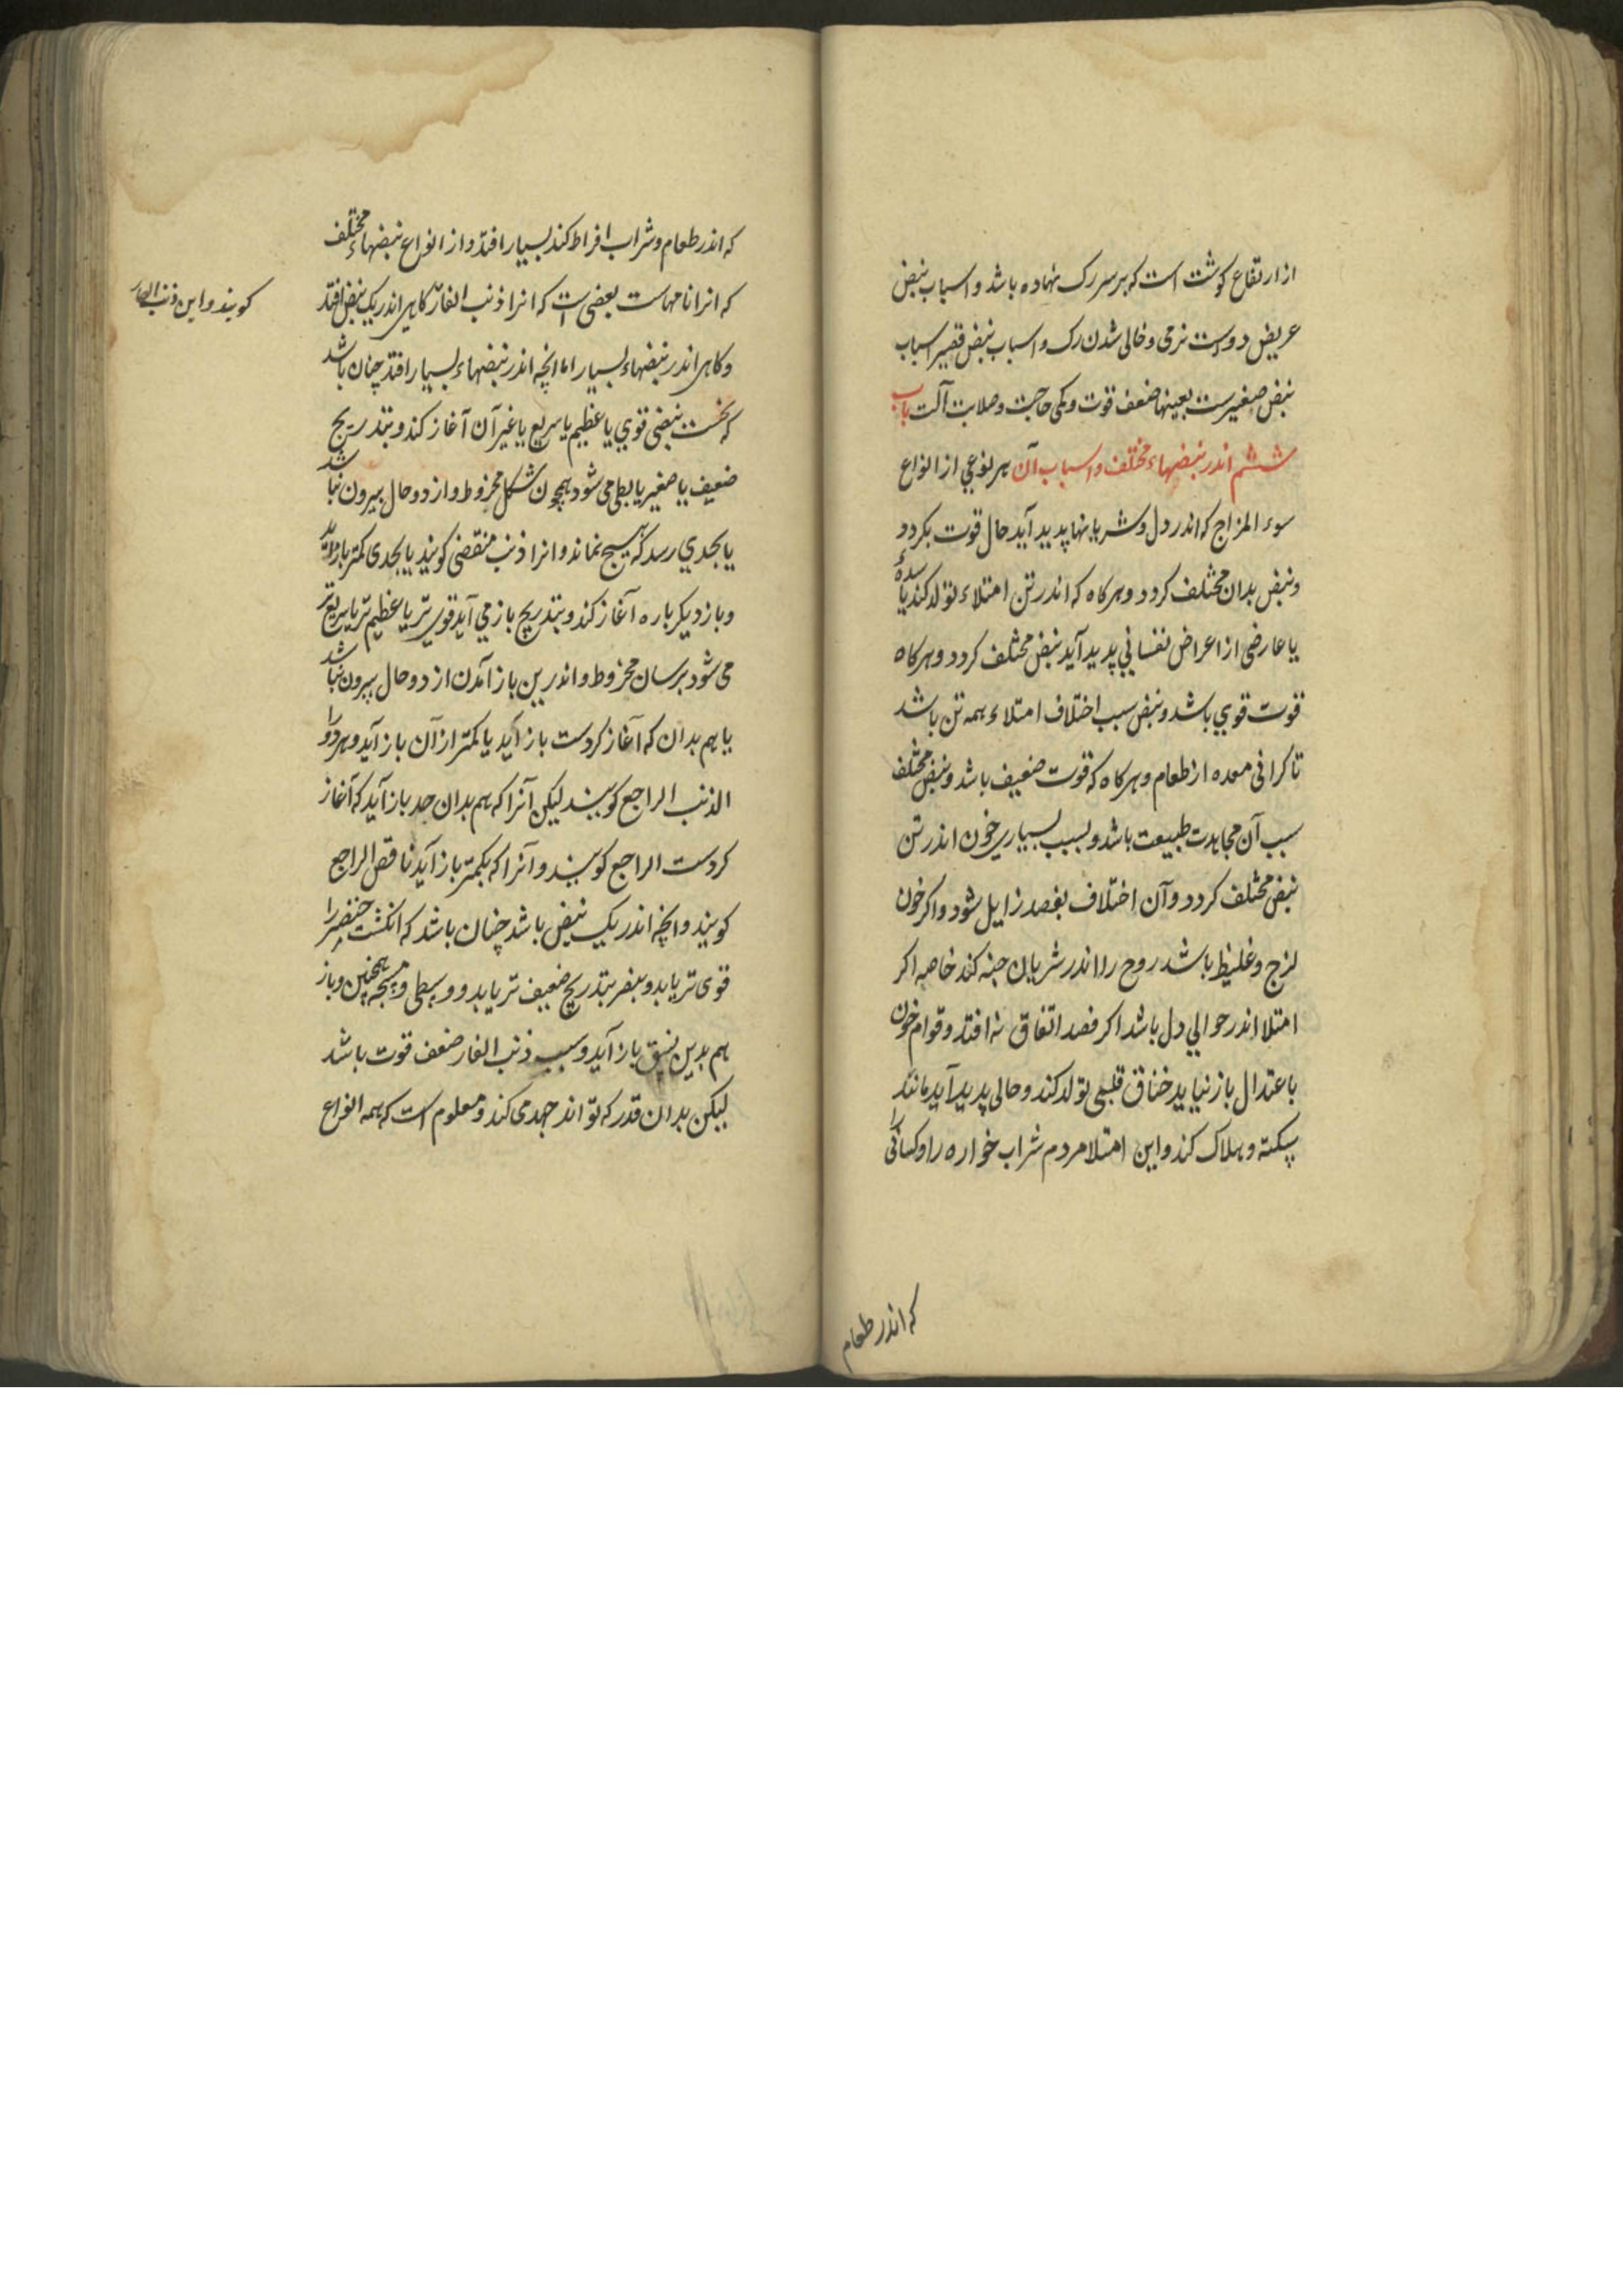 از ارتفاع کوشت است که بر سر رک نهاده باشد و اسباب نبض
عریض دوست نرمی و خالی شدن رک و اسباب نبض قصیر اسباب
نبض صغیرست بعینها ضعف قوت و کمی حاجت و صلابت آلت باب
ششم اندر نبضهاء مختلف و اسباب آن هر نوعی از انواع
سوء المزاج که اندر دل و شریانها پدید آید حال قوت بکردد
و نبض بدان مختلف کردد و هرکاه که اندر تن امتلاء تولد کند یا سدهٔ
یا عارضی از اعراض نفسانی پدید آید نبض مختلف کردد و هرکاه
قوت قوی باشد و نبض سبب اختلاف امتلاء همه تن باشد
تا کرانی معده از طعام و هرکاه که قوت ضعیف باشد و نبض مختلف
سبب آن مجاهدت طبیعت باشد و بسبب بسیاری خون اندر تن
نبض مختلف کردد و آن اختلاف بفصد زایل شود و اکر خون
لزج و غلیظ باشد روح را اندر شریان خبه کند خاصه اکر
امتلا اندر حوالی دل باشد اکر فصد اتفاق نه افتد و قوام خون
باعتدال باز نیاید خناق قلبی تولد کند و حالی پدید آید مانند
سکته و هلاک کند و این امتلا مردم شراب خواره را و کسانی را
که اندر طعام
که اندر طعام و شراب افراط کند بسیار افتد و از انواع نبضهاء مختلف
که انرا نامهاست بعضی است که انرا ذنب الفار کاهی اندر یک نبض افتد
کویند و این ذنب الفار
و کاهی اندر نبضهاء بسیار اما انچه اندر نبضهاء بسیار افتد چنان باشد
که نخست نبضی قوی یا عظیم یا سریع یا غیر آن آغاز کند و بتدریج
ضعیف یا صغیر یا بطی می شود همچون شکل مخروط و از دو حال بیرون نباشد
یا بحدی رسد که هیچ نماند و انرا ذنب منقضی کویند یا بحدی کمتر باز آید
و باز دیکر باره آغاز کند و بتدریج باز می آید قوی تر یا عظیم تر یا سریع تر
می شود برسان مخروط و اندرین باز آمدن از دو حال بیرون نباشد
یا هم بدان که آغاز کردست باز آید یا کمتر از آن باز آید و هر دو را
الذنب الراجع کویند لیکن آنرا که هم بدان حد باز آید که آغاز
کردست الراجع کویند و آنرا که بکمتر باز آید ناقص الراجع
کویند و انچه اندر یک نبض باشد چنان باشد که انکشت خنصر را
قوی تر یابد و بنصر بتدریج ضعیف تر یابد و وسطی و مسبحه همچنین و باز
هم بدین نسق باز آید و سبب ذنب الفار ضعف قوت باشد
لیکن بدان قدر که تواند جهد می کند و معلوم است که همه انواع